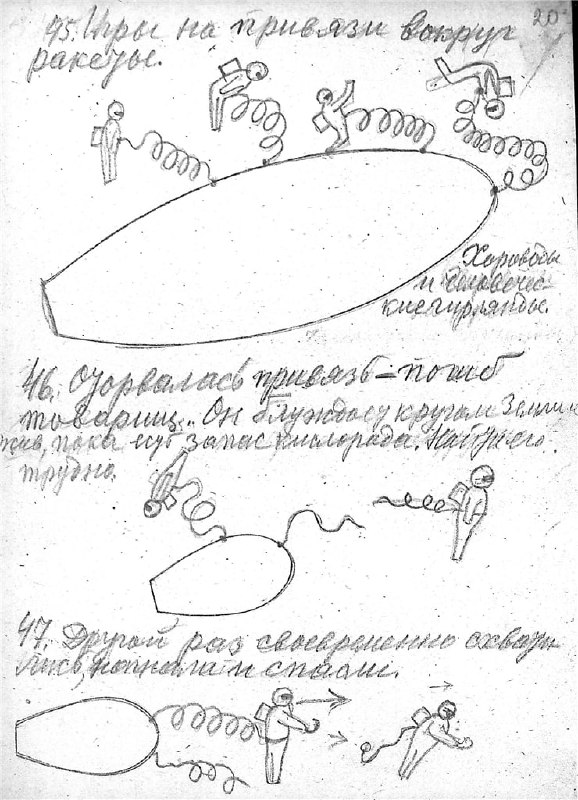 20
45. Игры на привязи вокруг
ракеты.
Хороводы
и человечес-
кие гирлянды.
46. Оторвалась привязь – погиб
товарищ.. Он блуждает кругом Земли и
жив, пока есть запас кислорода. Найти его
трудно.
47. Другой раз своевременно схвати-
лись, поймали и спасли.